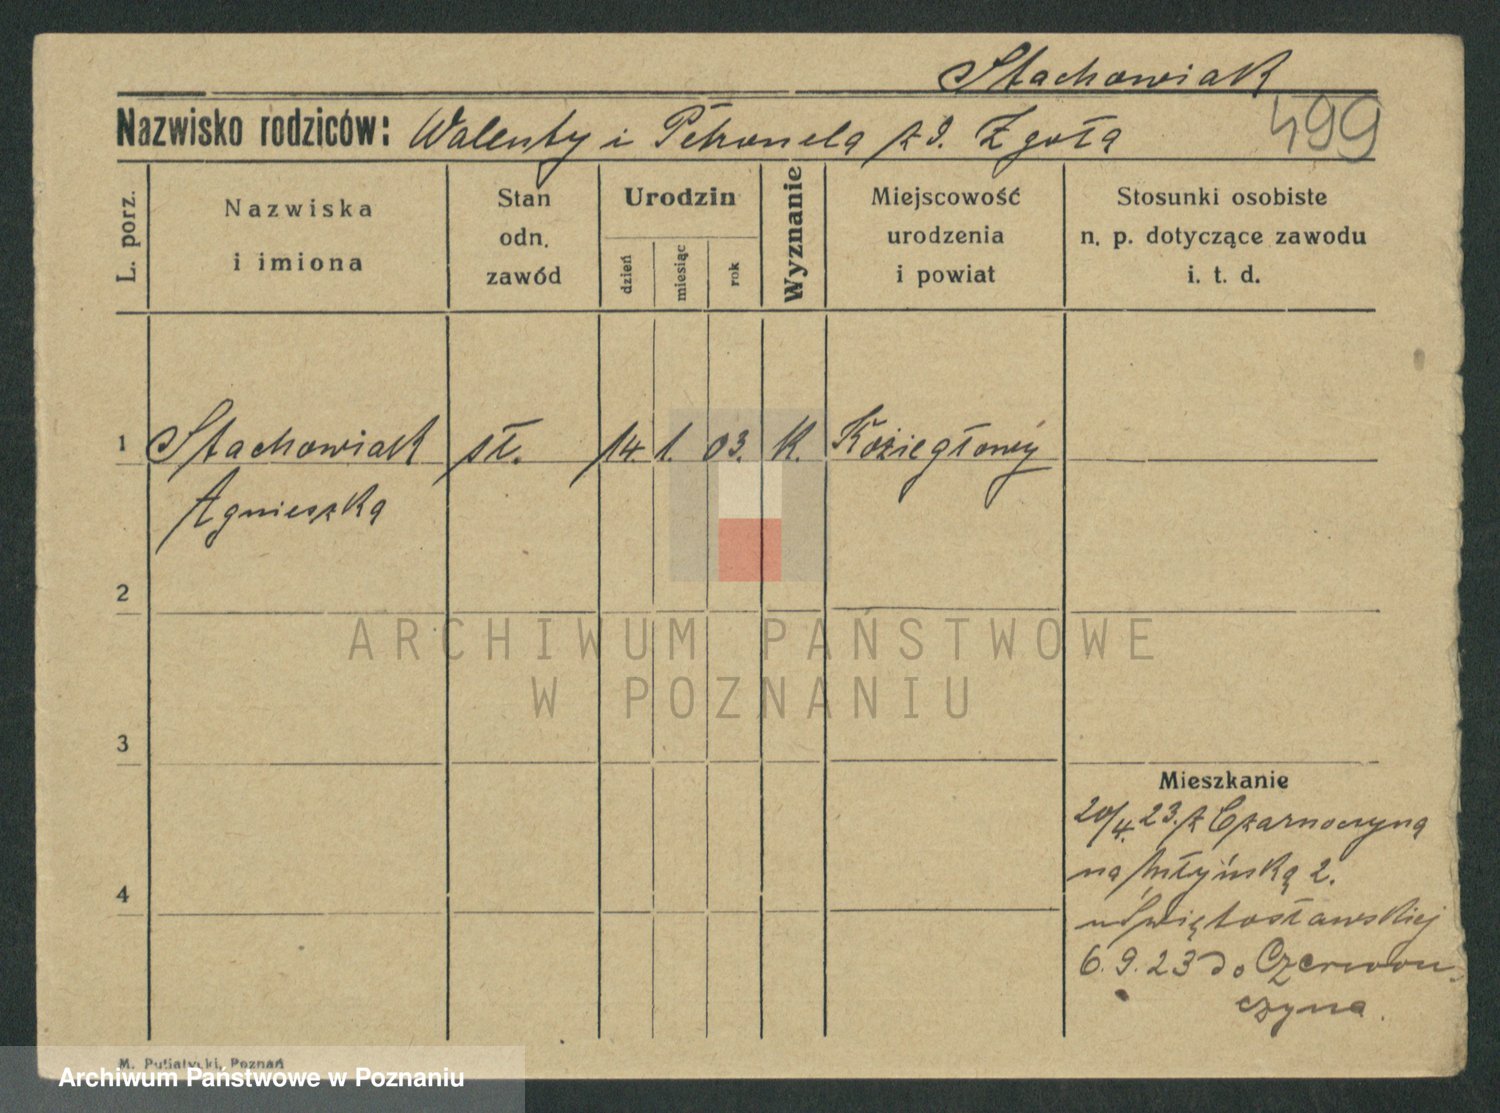 Stachowiak
Nazwisko rodziców: Walenty i Petronela z d. Zgoła
499
L. porz.
Nazwiska
i imiona
Stan
odn.
zawód
Urodzin
dzień
miesiąc
rok
Wyznanie
Miejscowość
urodzenia
i powiat
Stosunki osobiste
n. p. dotyczące zawodu
i. t. d.
1 Stachowiak sł. 14. 1. 03. K. Koziegłowy
Agnieszka
2
3
4
Mieszkanie
20/4. 23. z Czarnoczyna
na Młyńską 2.
u Świętosławskiej
6. 9. 23 do Czerwon-
czyna.
M. Putiatycki, Poznań
ARCHIWUM PAŃSTWOWE
W POZNANIU
Archiwum Państwowe w Poznaniu